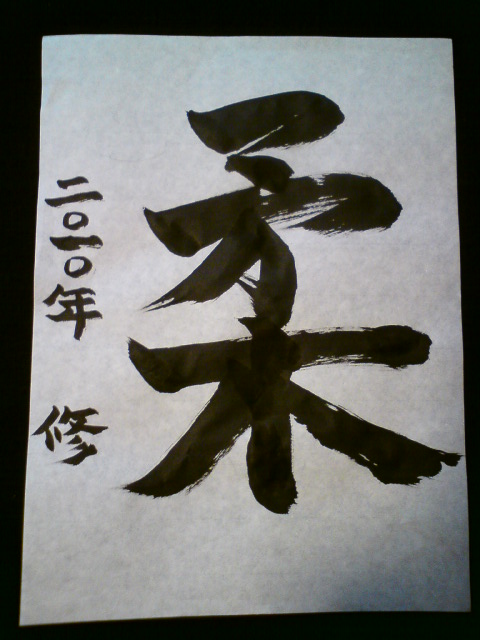 柔
二〇一〇年 修